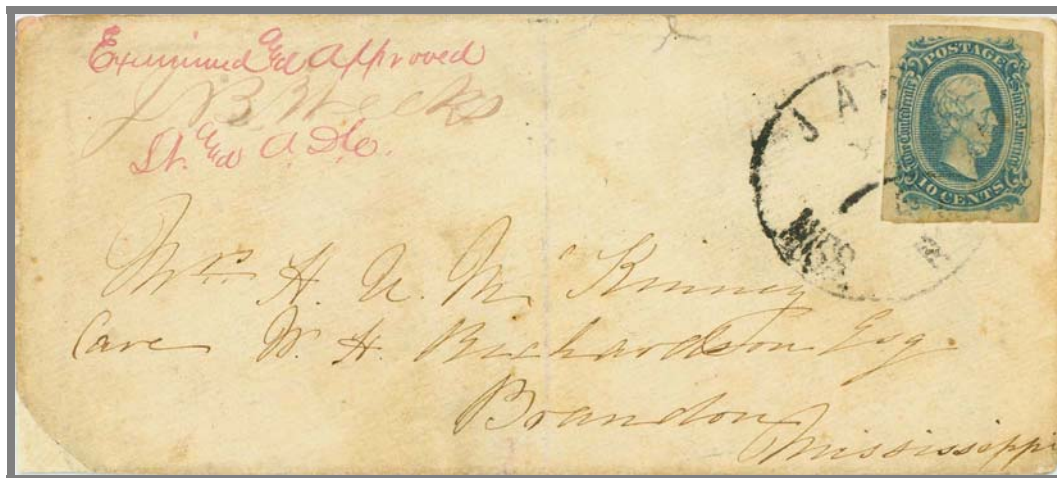 Examined and Approved
J B Weeks
Lt. and A.D.C.
POSTAGE
The Confederate States of America
10 CENTS
JA
MISS
Mrs H. U. Mc Kinney
Care W. H. Richardson Esq
Brandon
Mississippi